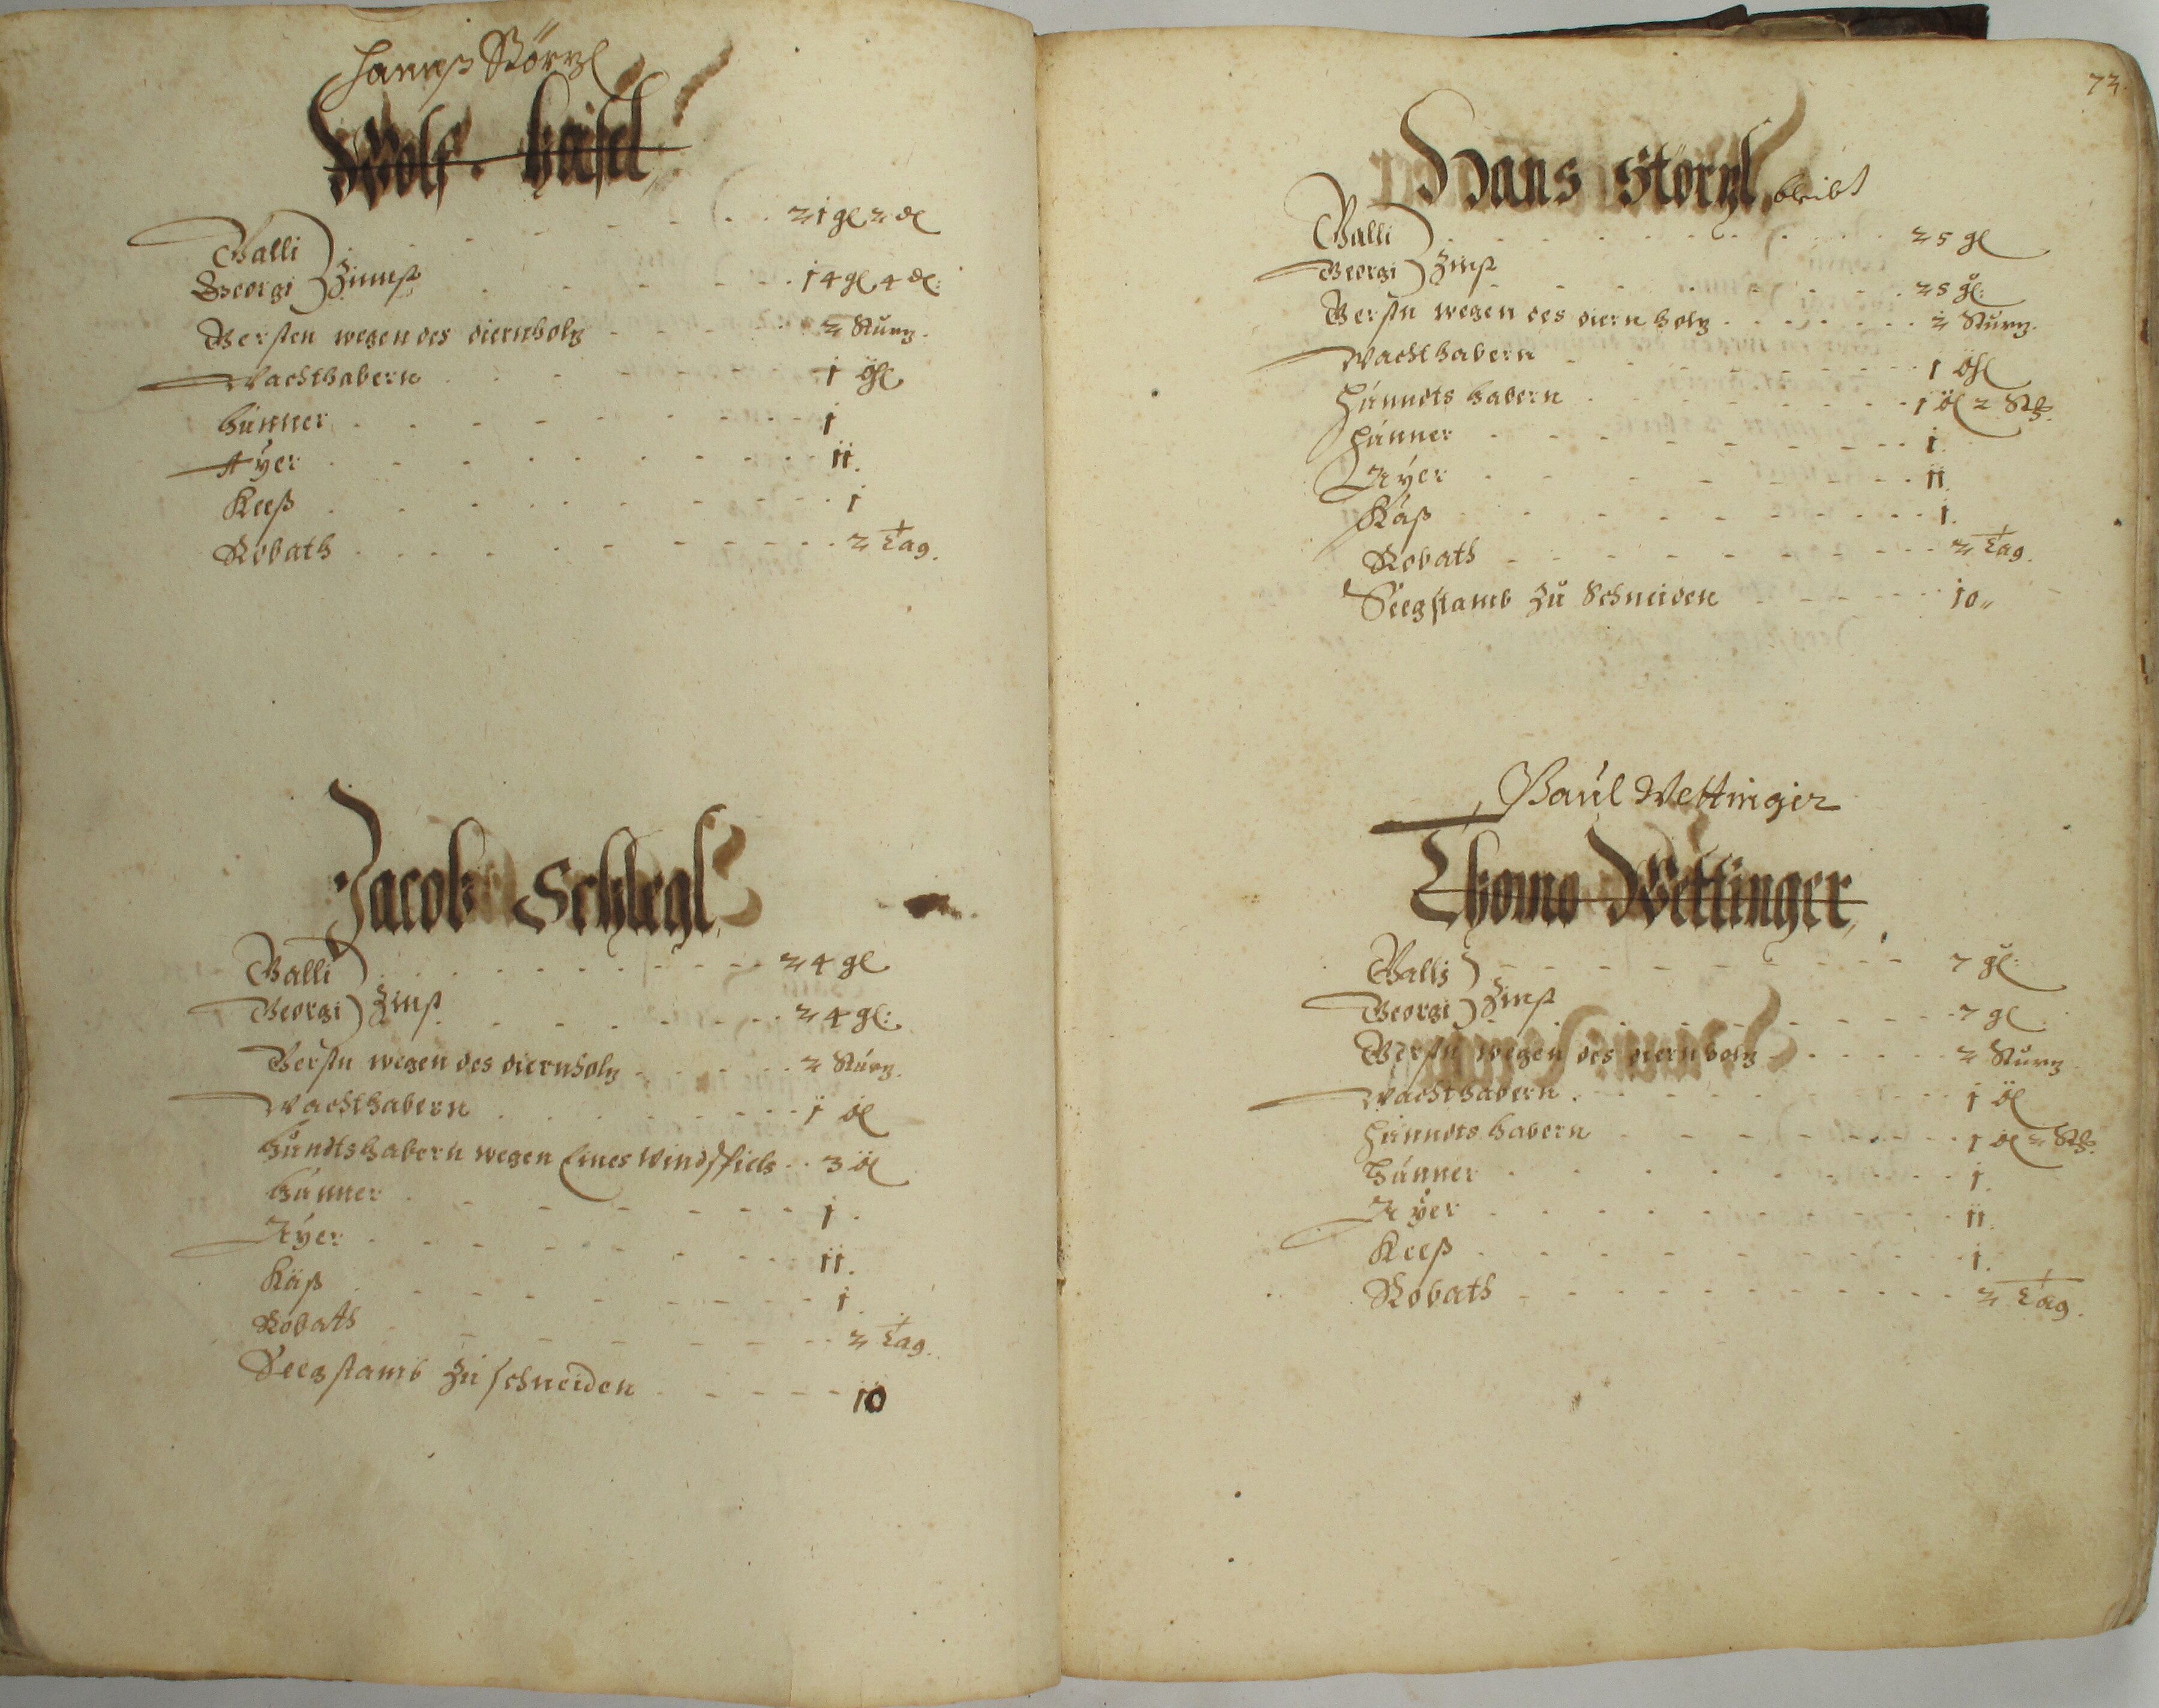 Hannß Störzl
Wolf Häisel
Galli 21 gl 2 ₰
Georgi Zinnß 14 gl 4 ₰:
Gersten wegen des diernholz 2 Stürz.
Wachthabern 1 öhl
hünner 1
Ayer 11.
Keeß 1
Robath 2 Tag.
Jacob Schlegl
Galli 24 gl
Georgi Zinß 24 gl:
Gerstn wegen des diernholz 2 Stürz.
Wachthabern 1 öl
hündtshabern wegen Eines Windspiels 3 öl
hünner 1.
Ayer 11.
Käß 1.
Robath 2 Tag.
Seegstamb zu schneiden 10
73.
Hans Störzl, bleibt
Galli 25 gl
Georgi Zinß 25 gl:
Gerstn wegen des diernholz 2 Stürz.
Wachthabern 1 öhl
hünndts habern 1 öl 2
hünner 1.
Ayer 11.
Käß 1.
Robath 2 Tag.
Seegstamb zu Schneiden 10
Paul Wettinger
Thoma Wettinger
Galli 7 gl:
Georgi Zinß 7 gl
Gerstn wegen des diernholz 2 Stürz
Wachthabern 1 öl
hünndts habern 1 öl 2
hünner 1.
Ayer 11.
Keeß 1.
Robath 2 Tag.